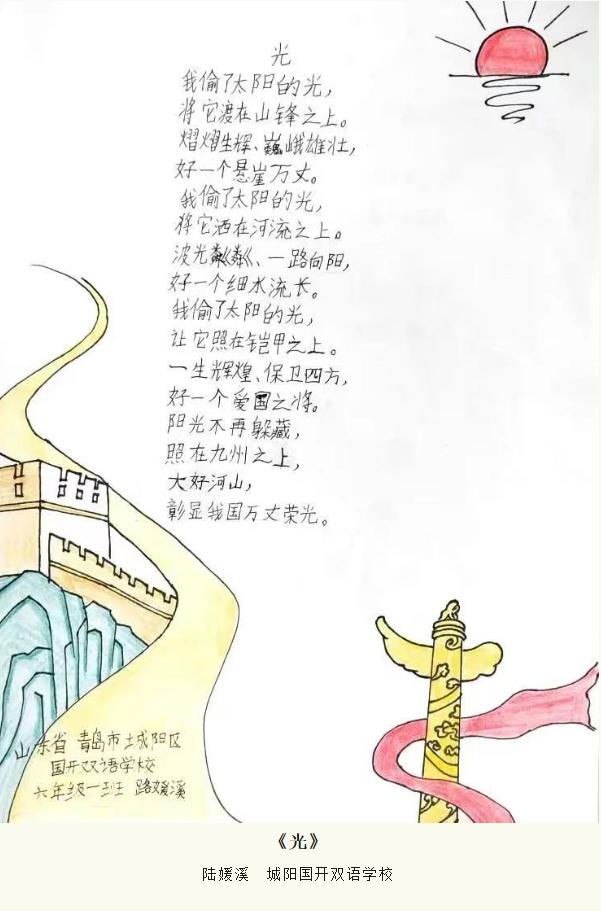 光
我偷了太阳的光，
将它渡在山锋之上。
熠熠生辉、巍峨雄壮，
好一个悬崖万丈。
我偷了太阳的光，
将它洒在河流之上。
波光粼粼、一路向阳，
好一个细水流长。
我偷了太阳的光，
让它照在铠甲之上。
一生辉煌、保卫四方，
好一个爱国之将。
阳光不再躲藏，
照在九州之上，
大好河山，
彰显我国万丈荣光。
山东省 青岛市土城阳区
国开双语学校
六年级一班 路媛溪
《光》
陆媛溪 城阳国开双语学校